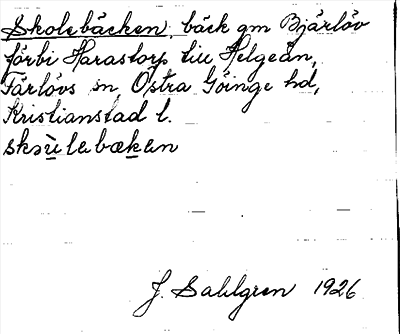 Skolebäcken, bäck gm Bjärlöv
förbi Harastorp till Helgeån,
Färlövs sn, Östra Göinge hd,
Kristianstad l.
skəu̯ləbækən
J. Sahlgren 1926